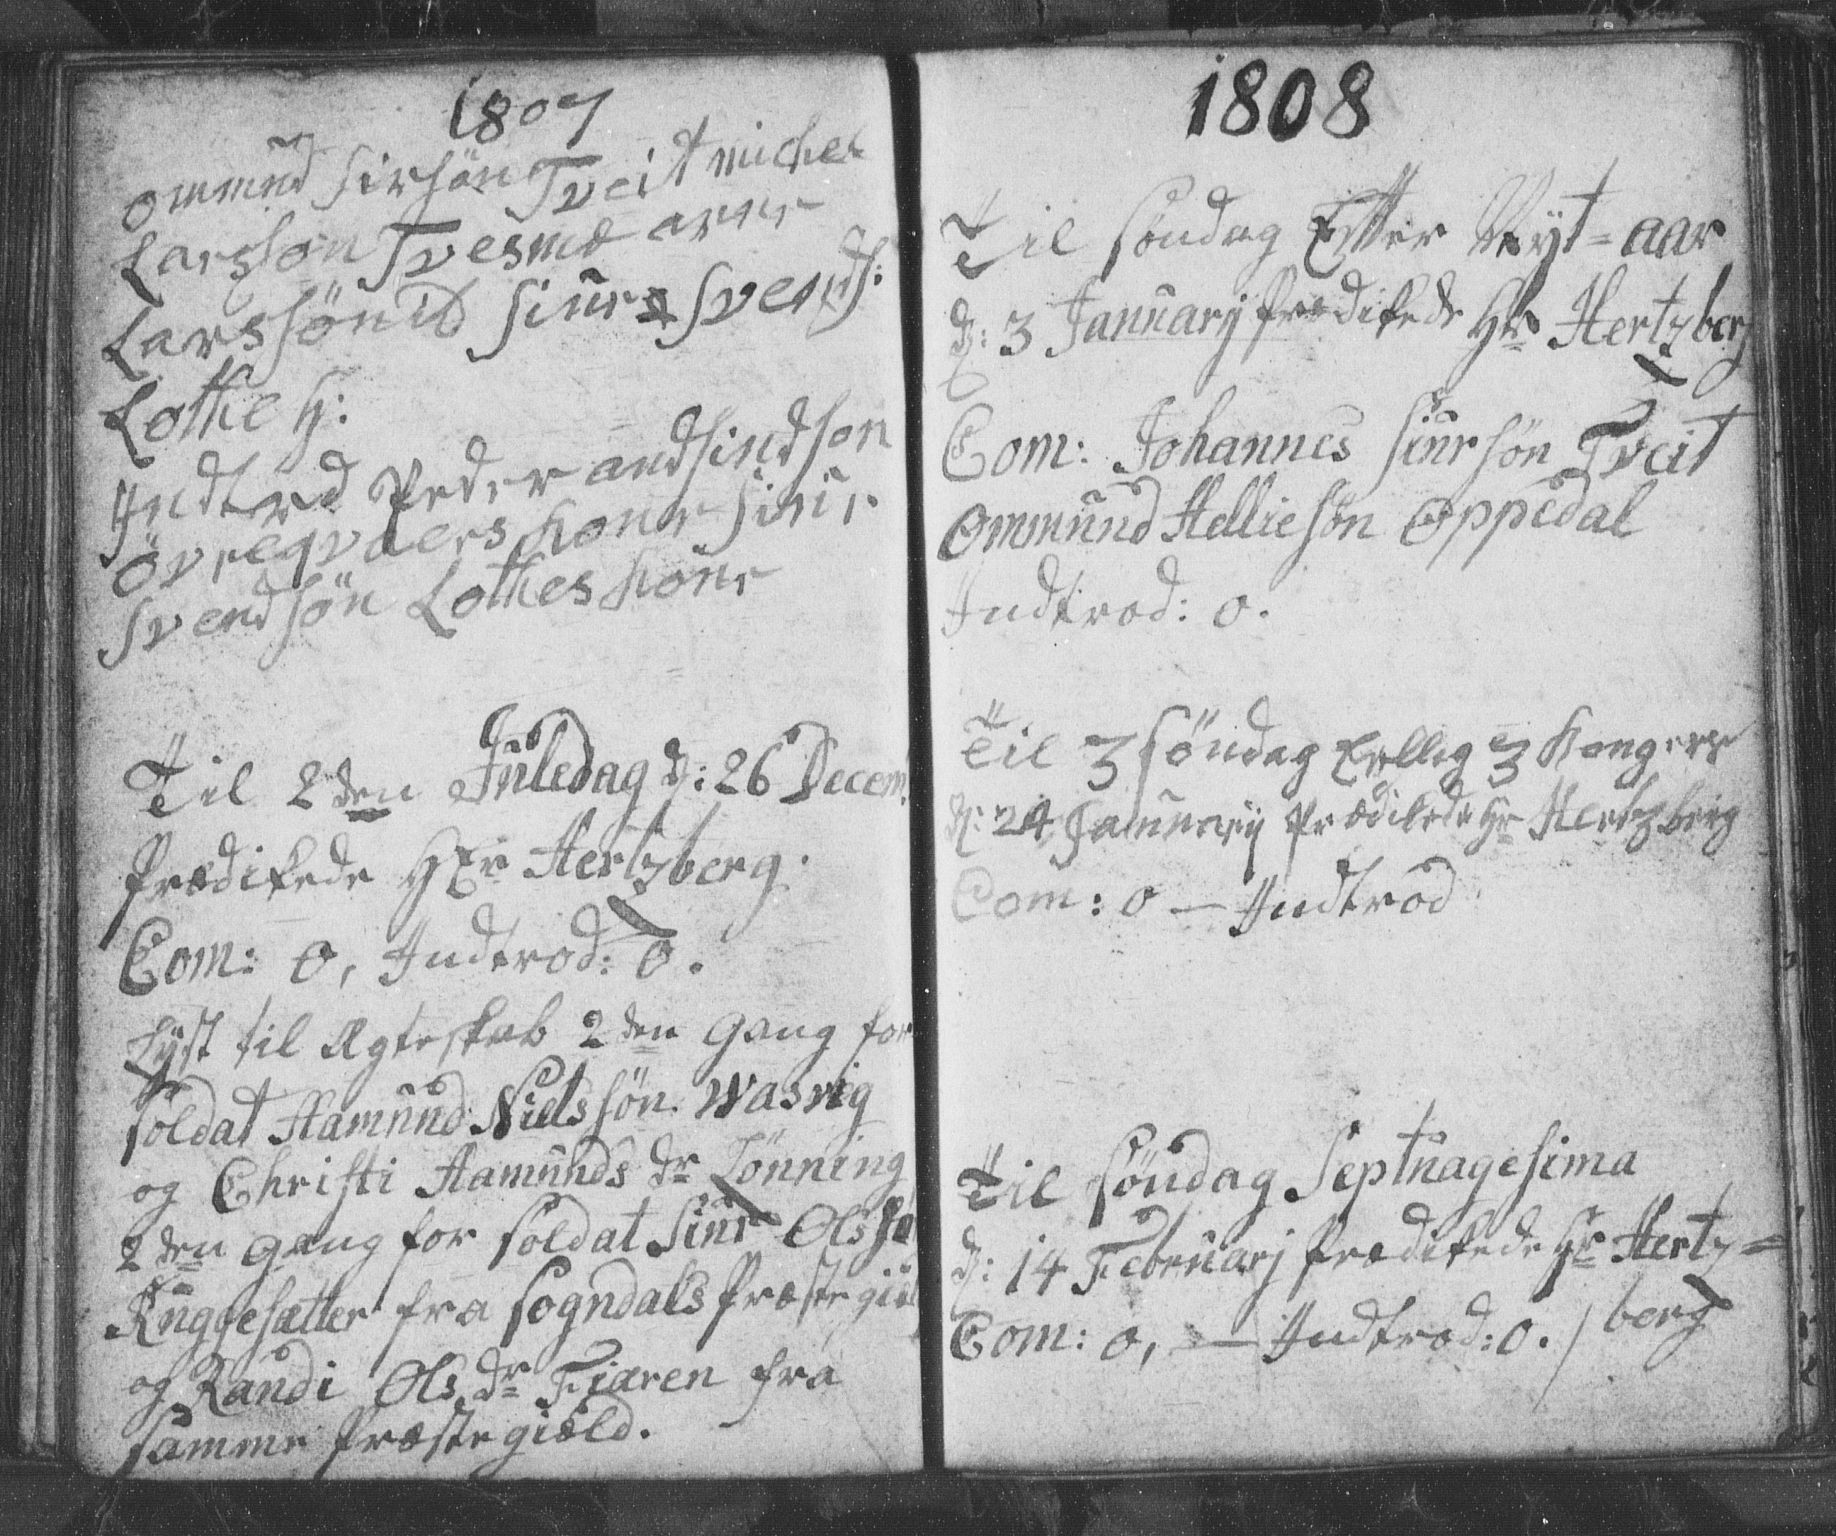 1807
ommund Sirsøn Tveit Michel
Larsson Tvesme
Larssøn Siur Svends:
Lothe H:
Indtrd Peder
Kone Siur
Svendsøn Lothes Kone
Til 2den Juledag d: 26 Decem:
Prædikede Hr Hertzberg.
Com: 0, Indtrod: 0.
Lyst til Ægteskab 2den Gang for
Soldat Aamund Nielssøn Wasvig
og Christi Aamunds dr Lønning
2den Gang for Soldat Siur Olssø
Ruggesætter fra Sogndals Præstegiæl
og Randi Ols dr Fiæren fra
samme Præstegiæld.
1808
Til Søndag Efter Nyt=aar
d: 3 Januarij Prædikede Hr Hertzberg
Com: Johannes Siursøn Tveit
Ommund Helliesøn Oppedal
Indtrod: 0.
Til 3 Søndag 3 Konger
d: 24 Januarij Prædikede Hr Hertzberg
Com: 0 — Indtrod
Til Søndag Septuagesima
d: 14 Februarj Prædikede Hr Hertz=
Com: 0, — Indtrod: 0. / berg